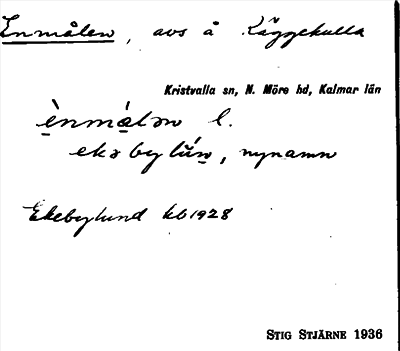 Enmålen, avs å Käggekulla
Kristvalla sn, N. Möre hd, Kalmar län
ènmå̀lən l.
ekəbylún, nynamn
Ekebylund kb 1928
STIG STJÄRNE 1936